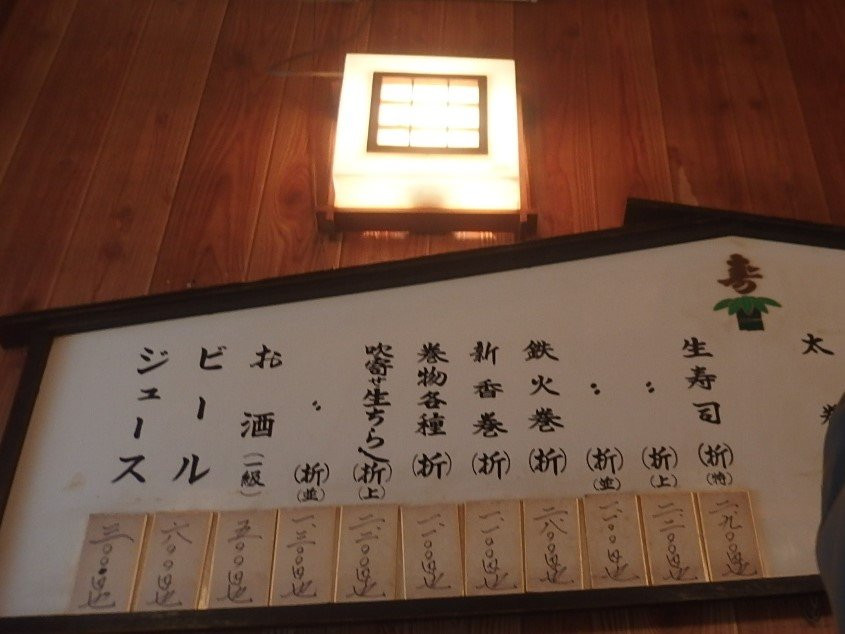 太
寿
生寿司(折)(特) 二.九〇〇円也
〃(折)(上) 二.二〇〇円也
〃(折)(並)
鉄火巻(折) 二.八〇〇円也
新香巻(折) 一.一〇〇円也
巻物各種(折)
吹寄せ生ちらし(折)(上) 二.二〇〇円也
〃(折)(並) 一.三〇〇円也
お酒(一級) 五〇〇円也
ビール 六〇〇円也
ジュース 三〇〇円也